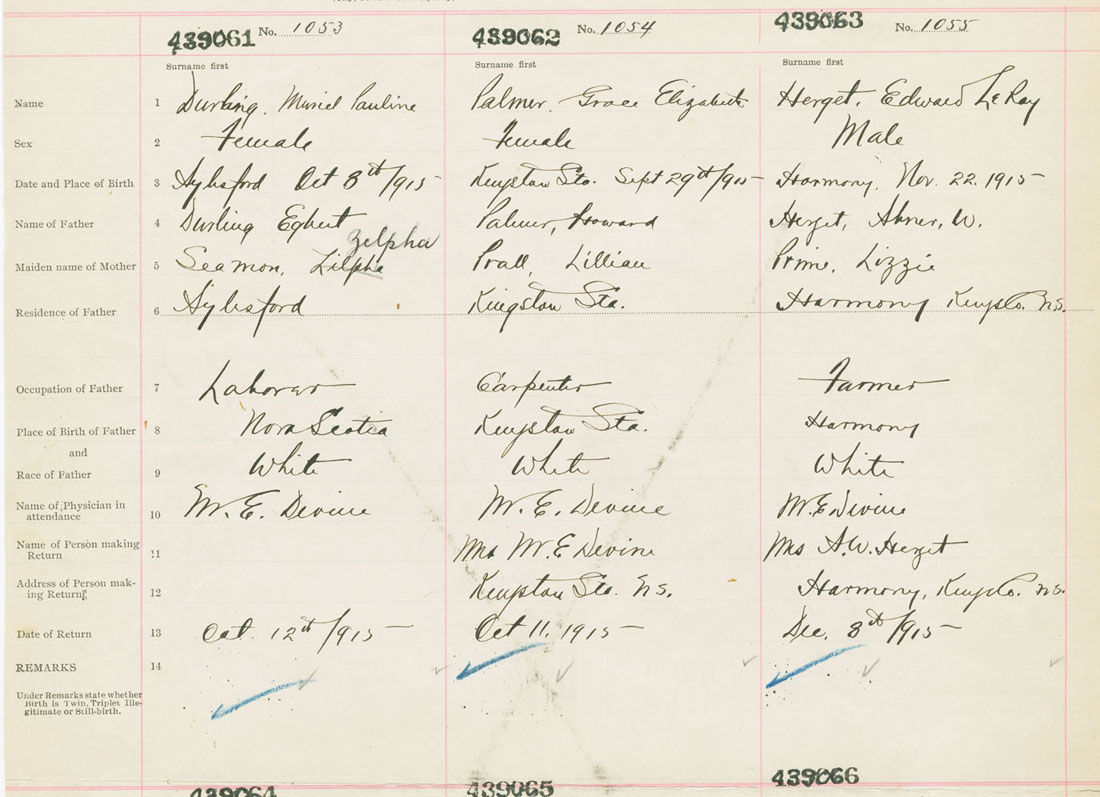 439061 No. 1053 439062 No. 1054 439063 No. 1055
Surname first Surname first Surname first
Name 1 Durling, Muriel Pauline Palmer, Grace Elizabeth Herget, Edward LeRoy
Sex 2 Female Female Male
Date and Place of Birth 3 Aylsford Oct 8th/915 Kingston Sta. Sept 29th/915 Harmony, Nov. 22. 1915
Name of Father 4 Durling Egbert Palmer, Howard Herget, Abner, W.
Zelpha
Maiden name of Mother 5 Seamon, Zilpha Prall, Lillian Prime, Lizzie
Residence of Father 6 Aylsford Kingston Sta. Harmony Kings Co. N.S.
Occupation of Father 7 Laborer Carpenter Farmer
Place of Birth of Father 8 Nova Scotia Kingston Sta. Harmony
and
Race of Father 9 White White White
Name of Physician in
attendance 10 W. E. Devine W. E. Devine W. E. Devine
Name of Person making
Return 11 Mrs W. E Devine Mrs A. W. Herget
Address of Person mak-
ing Return 12 Kingston Sta. N.S. Harmony, Kings Co. N.S.
Date of Return 13 Oct. 12th/915 Oct 11. 1915 Dec. 8th/915
REMARKS 14
Under Remarks state whether
Birth is Twin, Triplet Ille-
gitimate or Still-birth.
439064 439065 439066